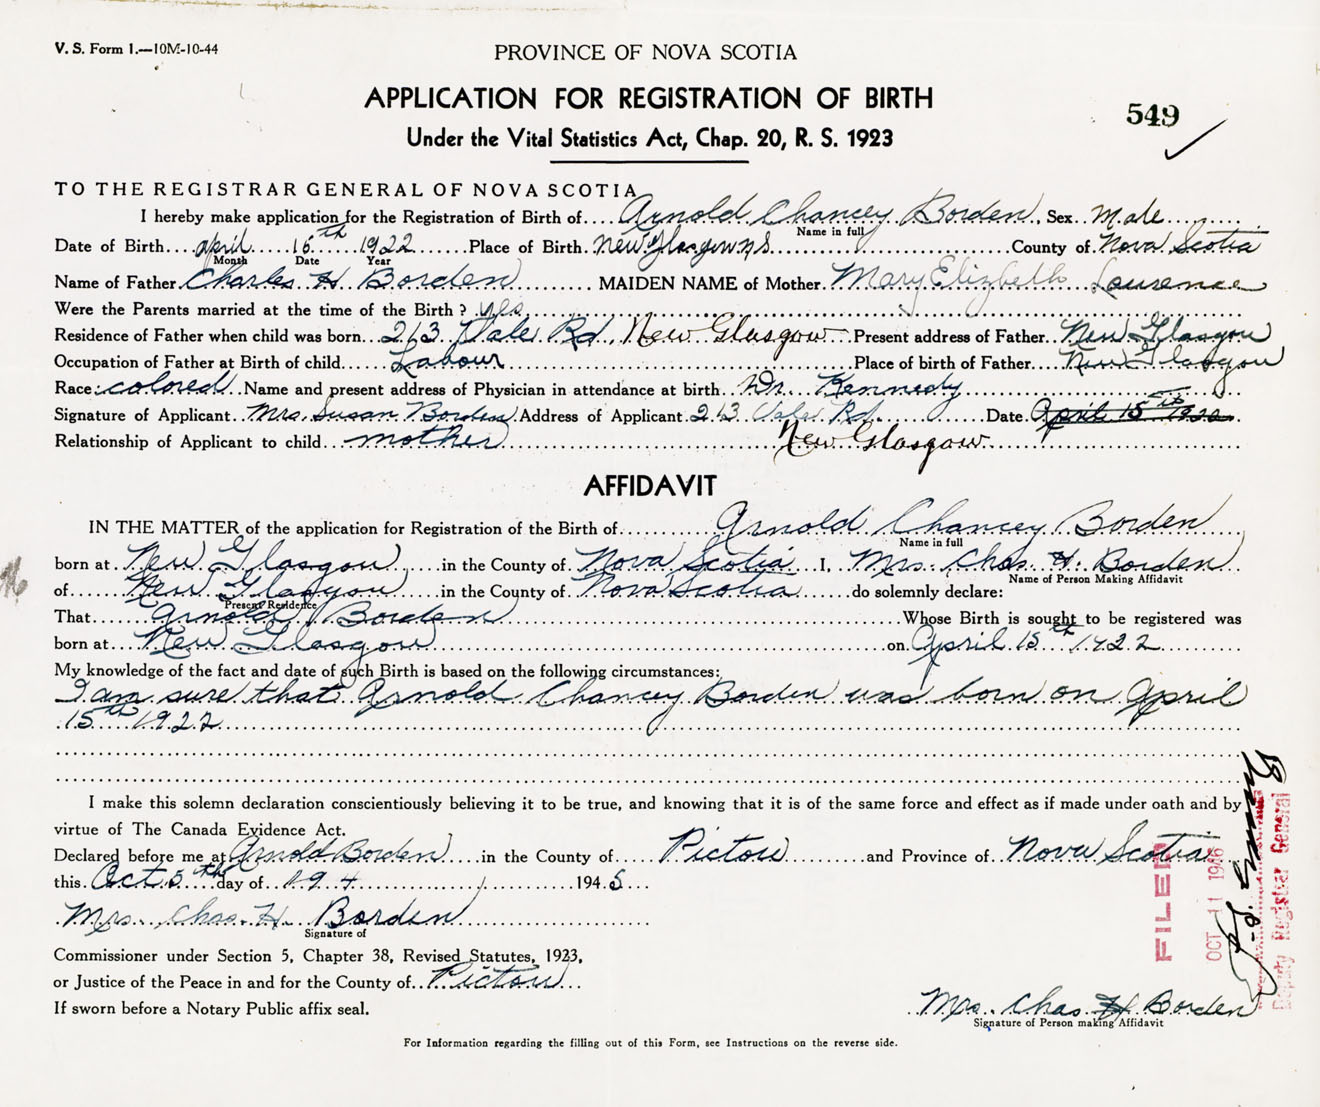 V. S. Form 1.—10M-10-44
PROVINCE OF NOVA SCOTIA
APPLICATION FOR REGISTRATION OF BIRTH
549
Under the Vital Statistics Act, Chap. 20, R. S. 1923
TO THE REGISTRAR GENERAL OF NOVA SCOTIA
I hereby make application for the Registration of Birth of Arnold Chancey Borden Sex Male
Name in full
Date of Birth April 15th 1922 Place of Birth New Glasgow N S County of Nova Scotia
Month Date Year
Name of Father Charles H Borden MAIDEN NAME of Mother Mary Elizbeth Laurence
Were the Parents married at the time of the Birth? yes
Residence of Father when child was born 213 Vale Rd, New Glasgow Present address of Father New Glasgow
Occupation of Father at Birth of child Labour Place of birth of Father New Glasgow
Race: colored Name and present address of Physician in attendance at birth Dr. Kennedy
Signature of Applicant Mrs. Susan Borden Address of Applicant 213 Vale Rd Date April 15th 1922
Relationship of Applicant to child mother New Glasgow
AFFIDAVIT
IN THE MATTER of the application for Registration of the Birth of Arnold Chancey Borden
Name in full
born at New Glasgow in the County of Nova Scotia I, Mrs. Chas. H. Borden
Name of Person Making Affidavit
of New Glasgow in the County of Nova Scotia do solemnly declare:
Present Residence
That Arnold Borden Whose Birth is sought to be registered was
born at New Glasgow on April 15th 1922
My knowledge of the fact and date of such Birth is based on the following circumstances:
I am sure that Arnold Chancey Borden was born on April
15th 1922
I make this solemn declaration conscientiously believing it to be true, and knowing that it is of the same force and effect as if made under oath and by
virtue of The Canada Evidence Act.
Declared before me at Arnold Borden in the County of Pictou and Province of Nova Scotia
this Oct 5th day of 194 1945
Mrs. Chas. H Borden
Signature of
Commissioner under Section 5, Chapter 38, Revised Statutes, 1923,
or Justice of the Peace in and for the County of Pictou
If sworn before a Notary Public affix seal.
Mrs. Chas H Borden
Signature of Person making Affidavit
For Information regarding the filling out of this Form, see Instructions on the reverse side.
FILED
OCT 11 1946
Deputy Registrar General